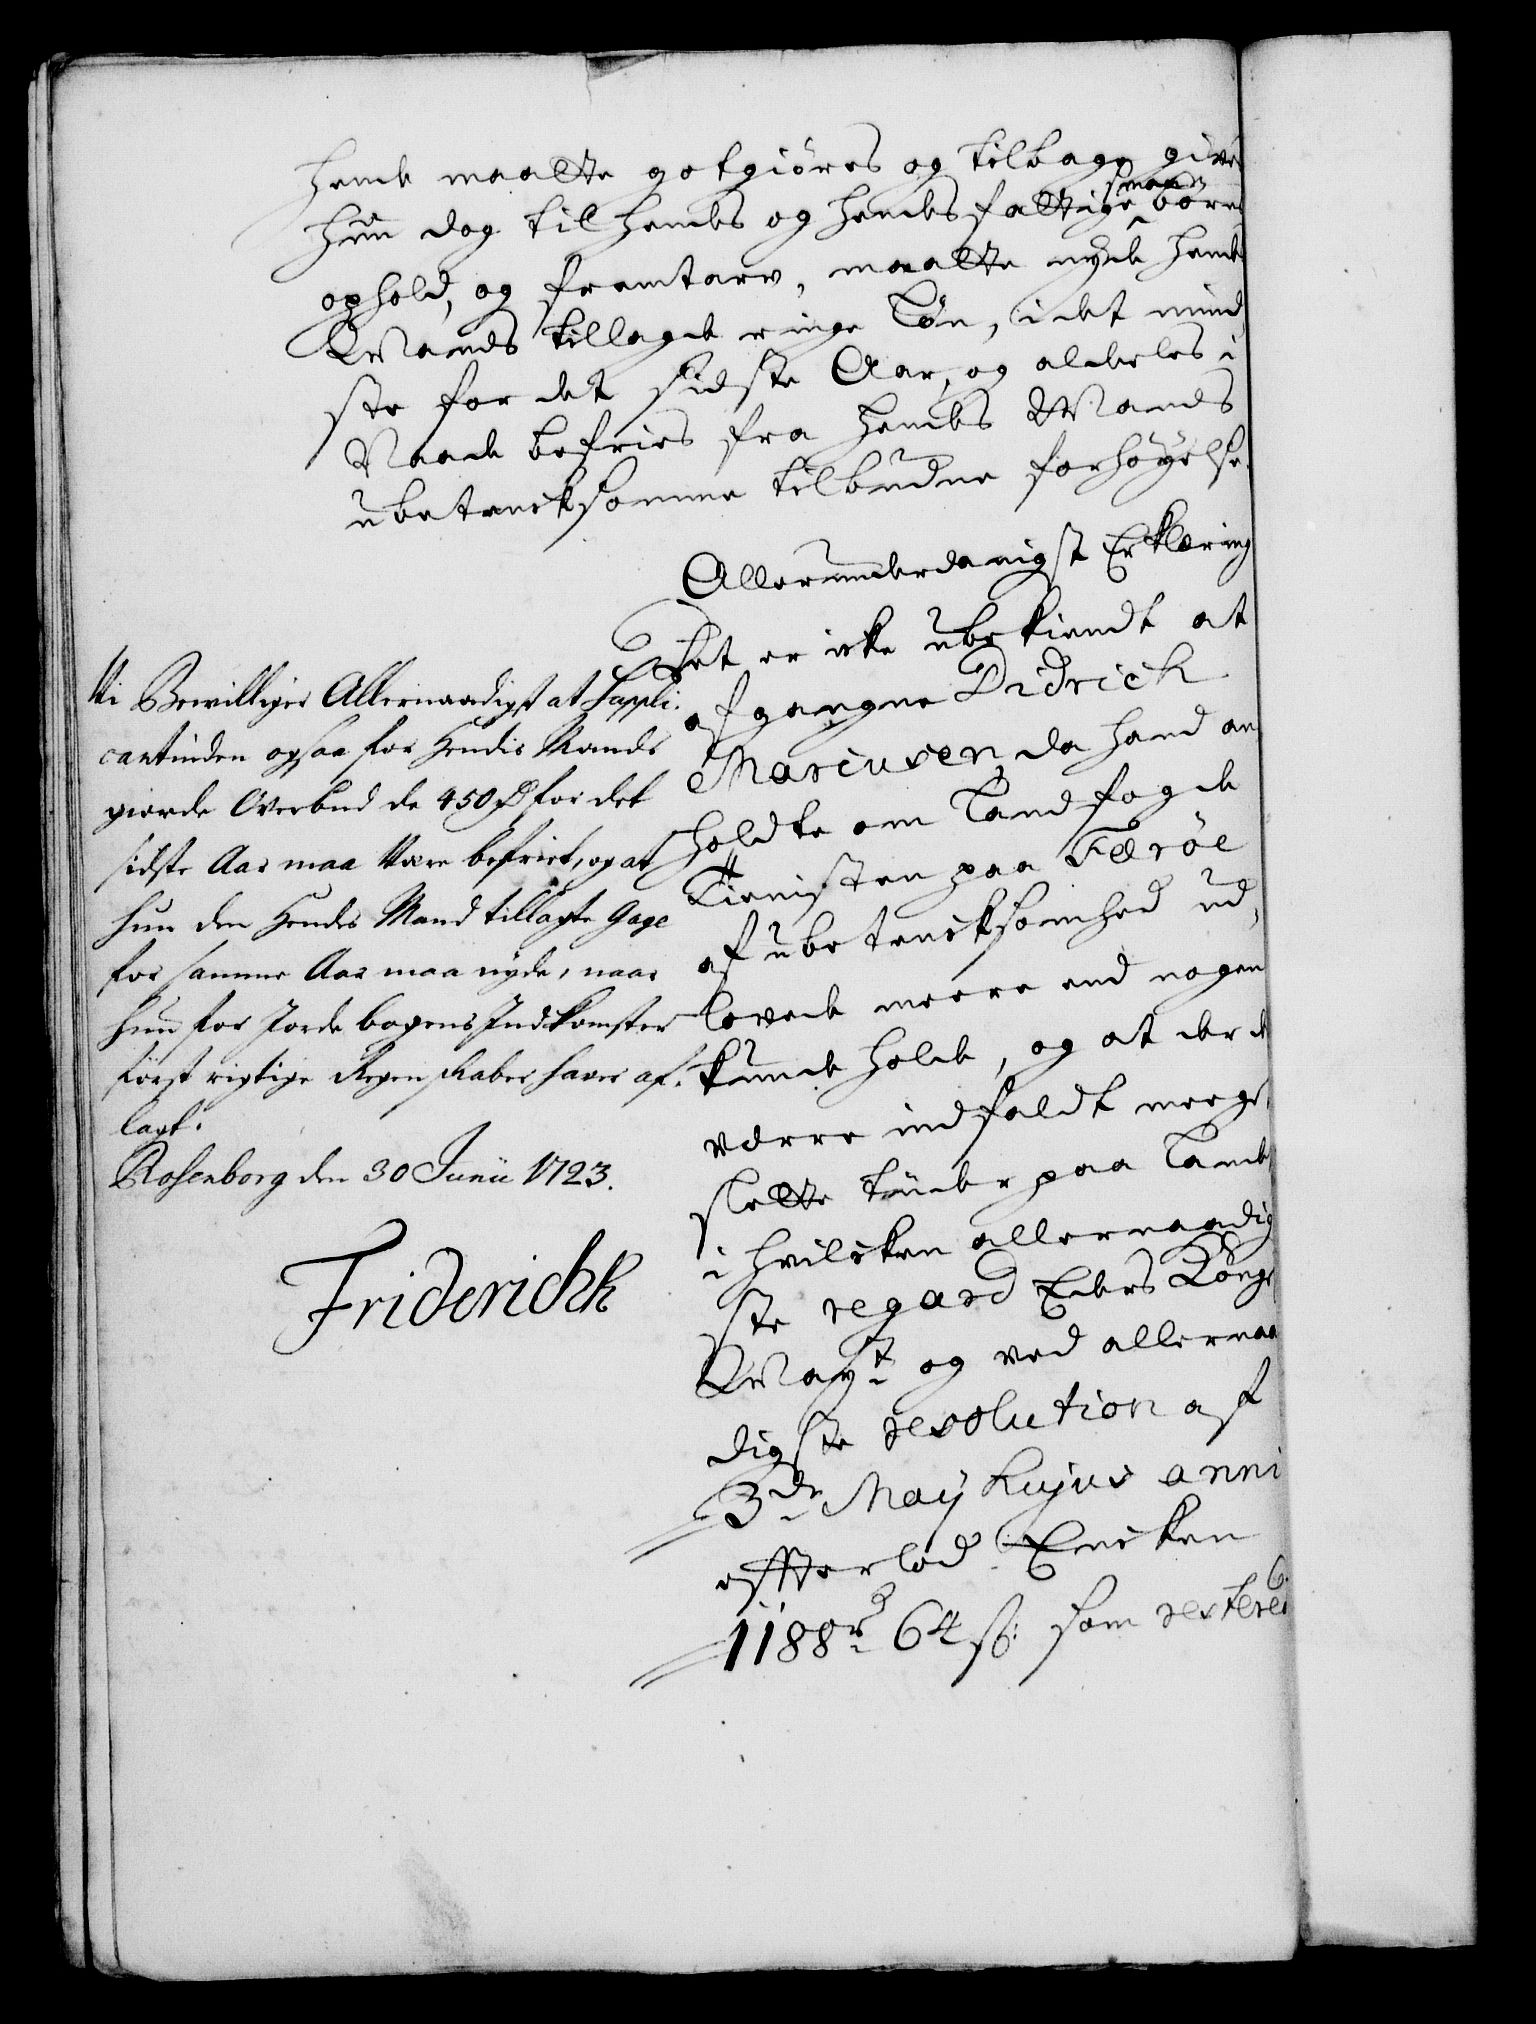 hende maatte gotgiöres og tilbage give
hun dog til hendes og hendes fattige smaae börns
ophold, og fremtarv, maatte nyde hende
Mands tillagde ringe Lön, i det mind,
ste for det sidste Aar, og aldeles i
Naade befries fra hendes Mands
ubetencksomme tilbudne forhöyelse.
Allerunderdanigst Erklæring
Det er icke ubekiendt at
afgangne Didrich
Marcusen, da hand an
holdte om Landfogde
Tienisten paa Færöe
af ubetencksomhed ud,
lovede meere end nogen
kunde holde, og at der de
værre indfaldt meege,
slette tiider paa Lande
i hvilcken allernaadig
ste regard Eders Konge
Mayt og ved allernaa
digste resolution af
3de Maÿ hujus anni
effterlod Encken
1188 r 64 s: som restere
Vi Bevilliger Allernaadigst at Suppli,
cantinden ogsaa for Hendis Mands
giorde Overbud de 450 rd for det
sidste Aar maa være befriet, og at
hun den Hendes Mand tillagte Gage
for samme Aar maa nyde, naar
hun for Jordebogens Indkomster
först rigtige Regenskaber haver af,
lagt.
Rosenborg den 30 Junii 1723.
Friderich R